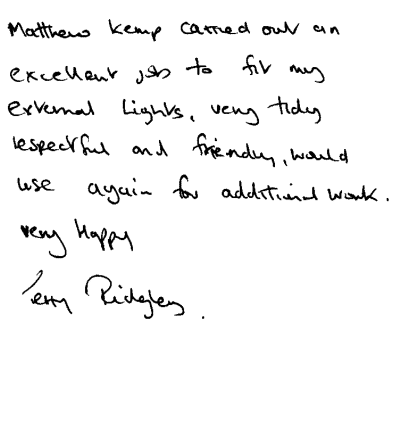 Matthew Kemp carried out an
excellent job to fit my
external lights, very tidy
respectful and friendly, would
use again for additional work.
very Happy
Terry Ridgley.